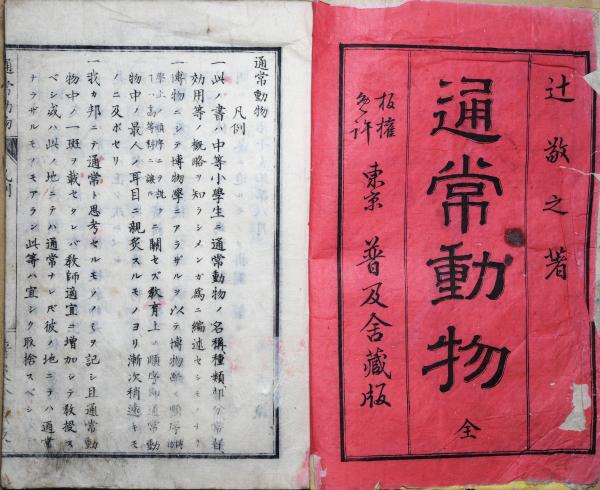 辻敬之著
通常動物 全
板權免許
東京 普及舎藏版
通常動物
凡例
一此ノ書ハ中等小學生ニ通常動物ノ名稱種類部分常習
効用等ノ概略ヲ知ラシメンガ爲ニ編述セシモノナリ
一博物ニシテ博物學ニアラザルヲ以テ博物學ノ順序
學上ノ順序ニヲ説ノニ關セズ教育上ノ順序即通常動
ハ高等科ニ讓ル
物中ノ最人ノ耳目ニ親炙スルモノヨリ漸次稍遠キモ
ノニ及ボセリ
一我カ邦ニテ通常ト思考セルモノノミヲ記シ且通常動
物中ノ一斑ヲ載セタレバ教師適宜ニ増加シテ教授ス
ベシ或ハ此ノ地ニテハ通常ナレドモ彼ノ地ニテハ通常
ナラザルモノモアラン此等ハ宜シク取捨スベシ
通常動物
凡例